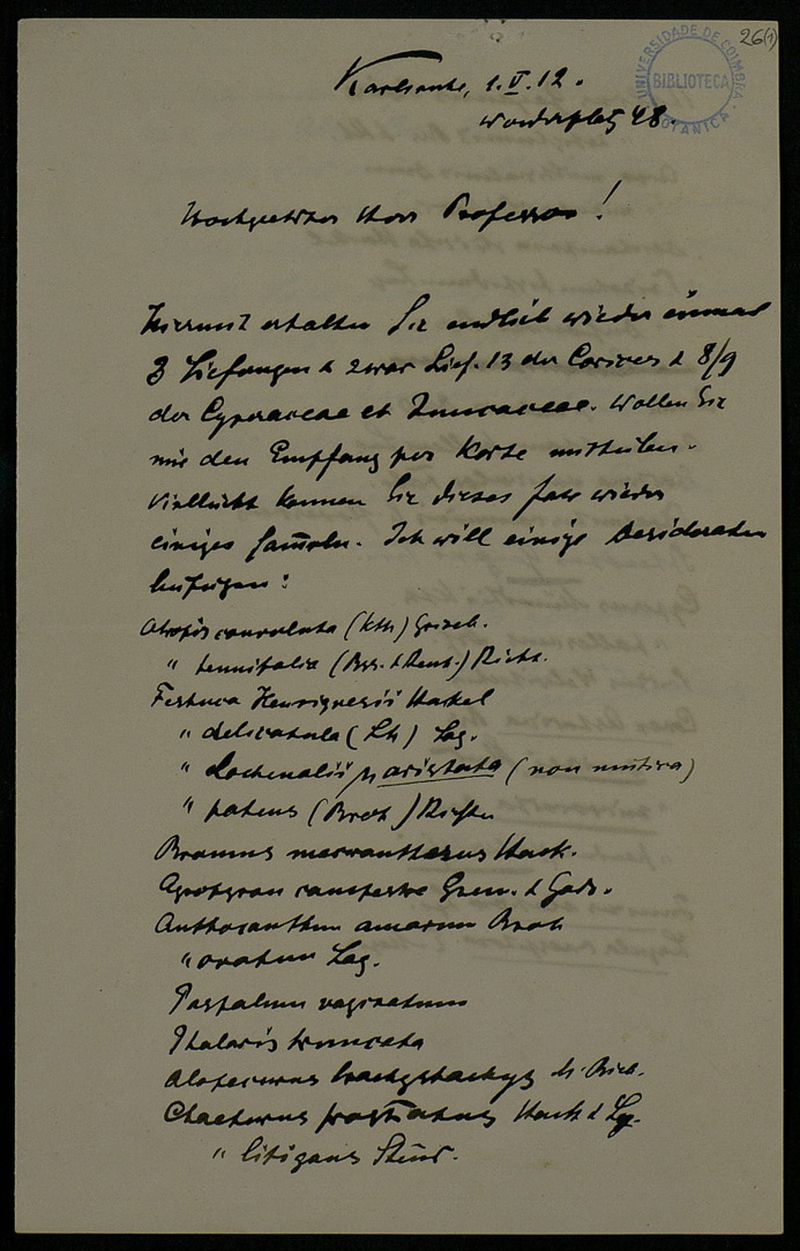 26(1)
UNIVERSIDADE DE COIMBRA
BIBLIOTECA
BOTANICA
Karlsruhe, 1.V.12.
Werderplatz 48.
Hochgeehrter Herr Professor!
Hiermit erhalten Sie endlich wieder einmal
3 Liefrungen & zwar Lief. 13 der Carices & 8/9
der Cyperaceae et Juncaceae. Wollen Sie
mir den Empfang per Karte mitteilen.
Vielleicht können Sie dieses Jahr wieder
einiges sam̄eln. Ich will einige Desideraten
beifügen:
Atropis convoluta (Kth) Griseb.
" tenuifolia (Bss. & Reut.) Richt.
Festuca Henriquesii Hackel
" delicatula (Lk) Lag.
" Lachenalii β aristata (non mutica)
" patens (Brot) Richter
Bromus macrantherus Hack.
Agropyron campestre Gren. & Godr.
Anthoxanthum amarum Brot
" ovatum Lag.
Paspalum vaginatum
Phalaris truncata
Alopecurus brachystachys M. Bieb.
Chaeturus prostratus Hack & Lge.
" litigans Steud.